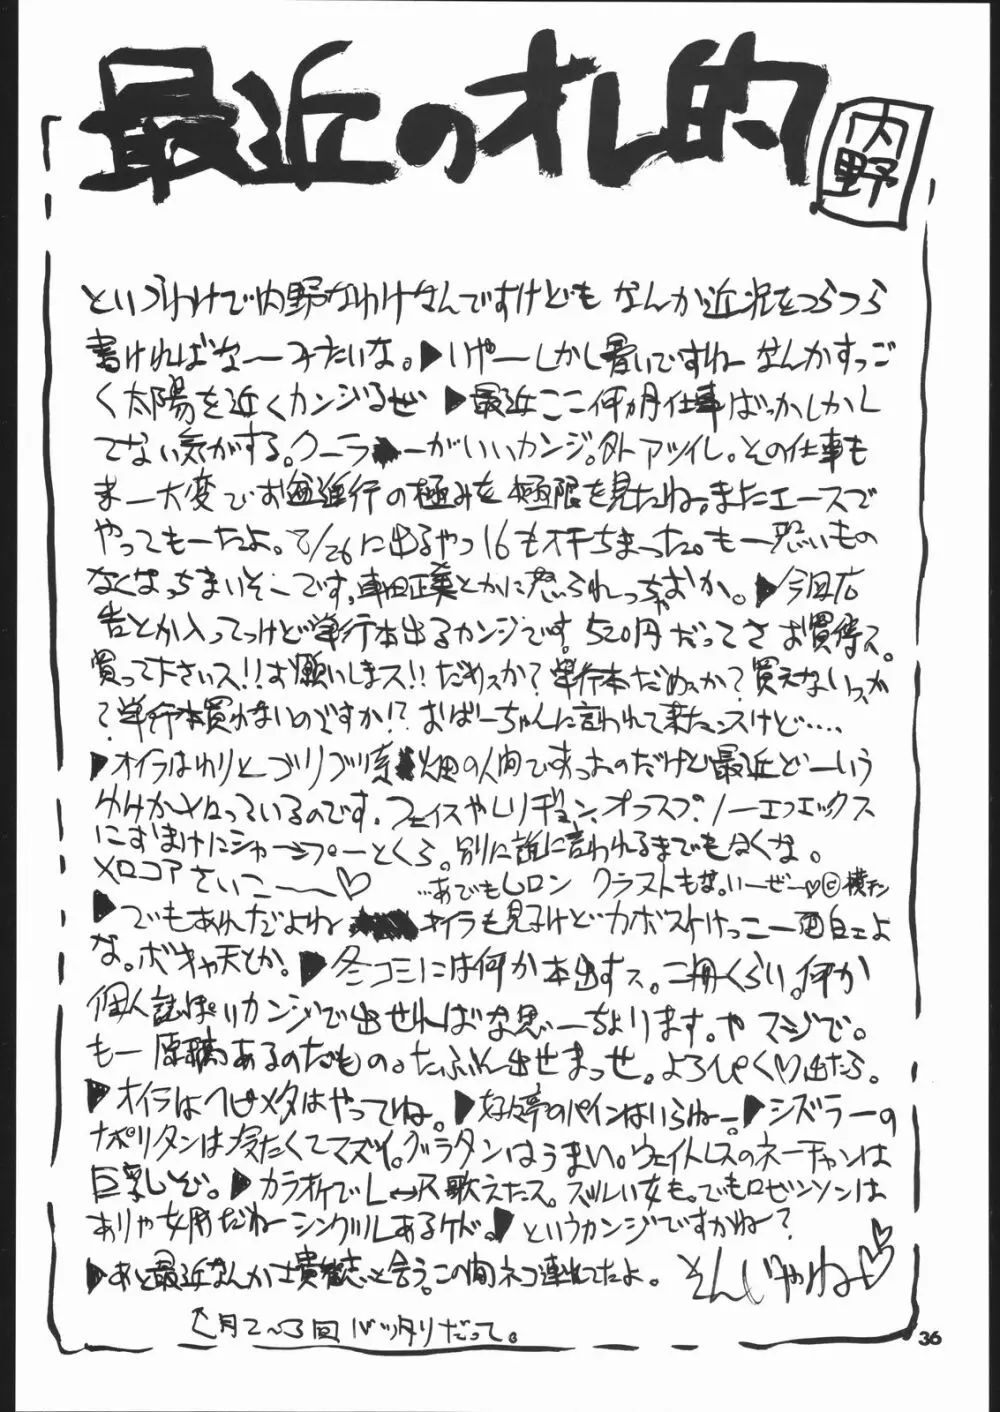 最近のオレ的
内野
というわけで内野なわけなんですけども なんか近況をつらつら
書ければなーみたいな。▶いやーしかし暑いですねーなんかすっご
く太陽を近くカンジるぜ ▶最近ここ何ヵ月仕事ばっかしかし
てない気がする。クーラーがいいカンジ。外アツイし。その仕事も
まー大変でお進行の極みを極限を見たね。またエースで
やってもーたよ。8/26に出るやつ16もオチちまった。もー恐いもの
なくなっちまいそーです。車田正美とかに怒ふれっちゃおか。▶今回広
告とか入ってっけど単行本出るカンジです。520円だってさ お買得ス。
買って下さいス!!お願いしまス!!だめスか?単行本だめスか?買えないっスか
?単行本買わないのですか!?おばーちゃんに言われて来たンスけど....
▶オイラはわりとゴリゴリ系畑の人間ですったのだけど最近どーいう
わけかメロっているのです。フェイスやレリギョン、オフスプ、ノーエフエックス
にずまけにシャーンプーとくら。別に誰に言われるまでもなくな。
メロコアさいこーー♡ ...あでもLロン クラストもな。いーぜー♡©横チン
▶でもあれだよね オイラも見るけどカボスケけっこー面白ェよ
な。ボキャ天とか。▶冬コミには何か本出すス。二冊くらい。何か
個人誌ぽいカンジで出せればな思ーちょります。や マジで。
もー原稿あるのだもの。たぶん出せまっせ。よろぴく♡出たら。
▶オイラはヘビメタはやってね。▶好々亭のパインはいらねー。▶シズラーの
ナポリタンは冷たくてマズイ。グラタンはうまい。ウェイトレスのネーチャンは
巨乳しど。▶カラオケでL↔R歌えたス。ズルい女も。でもロビンソンは
ありゃ女用だねーシングルしあるケド。▶というカンジですかね~?
▶あと最近なんか士貴智志と会う。この間ネコ連れてたよ。 そんじゃね♡
↑月2~3回バッタリだって。
36